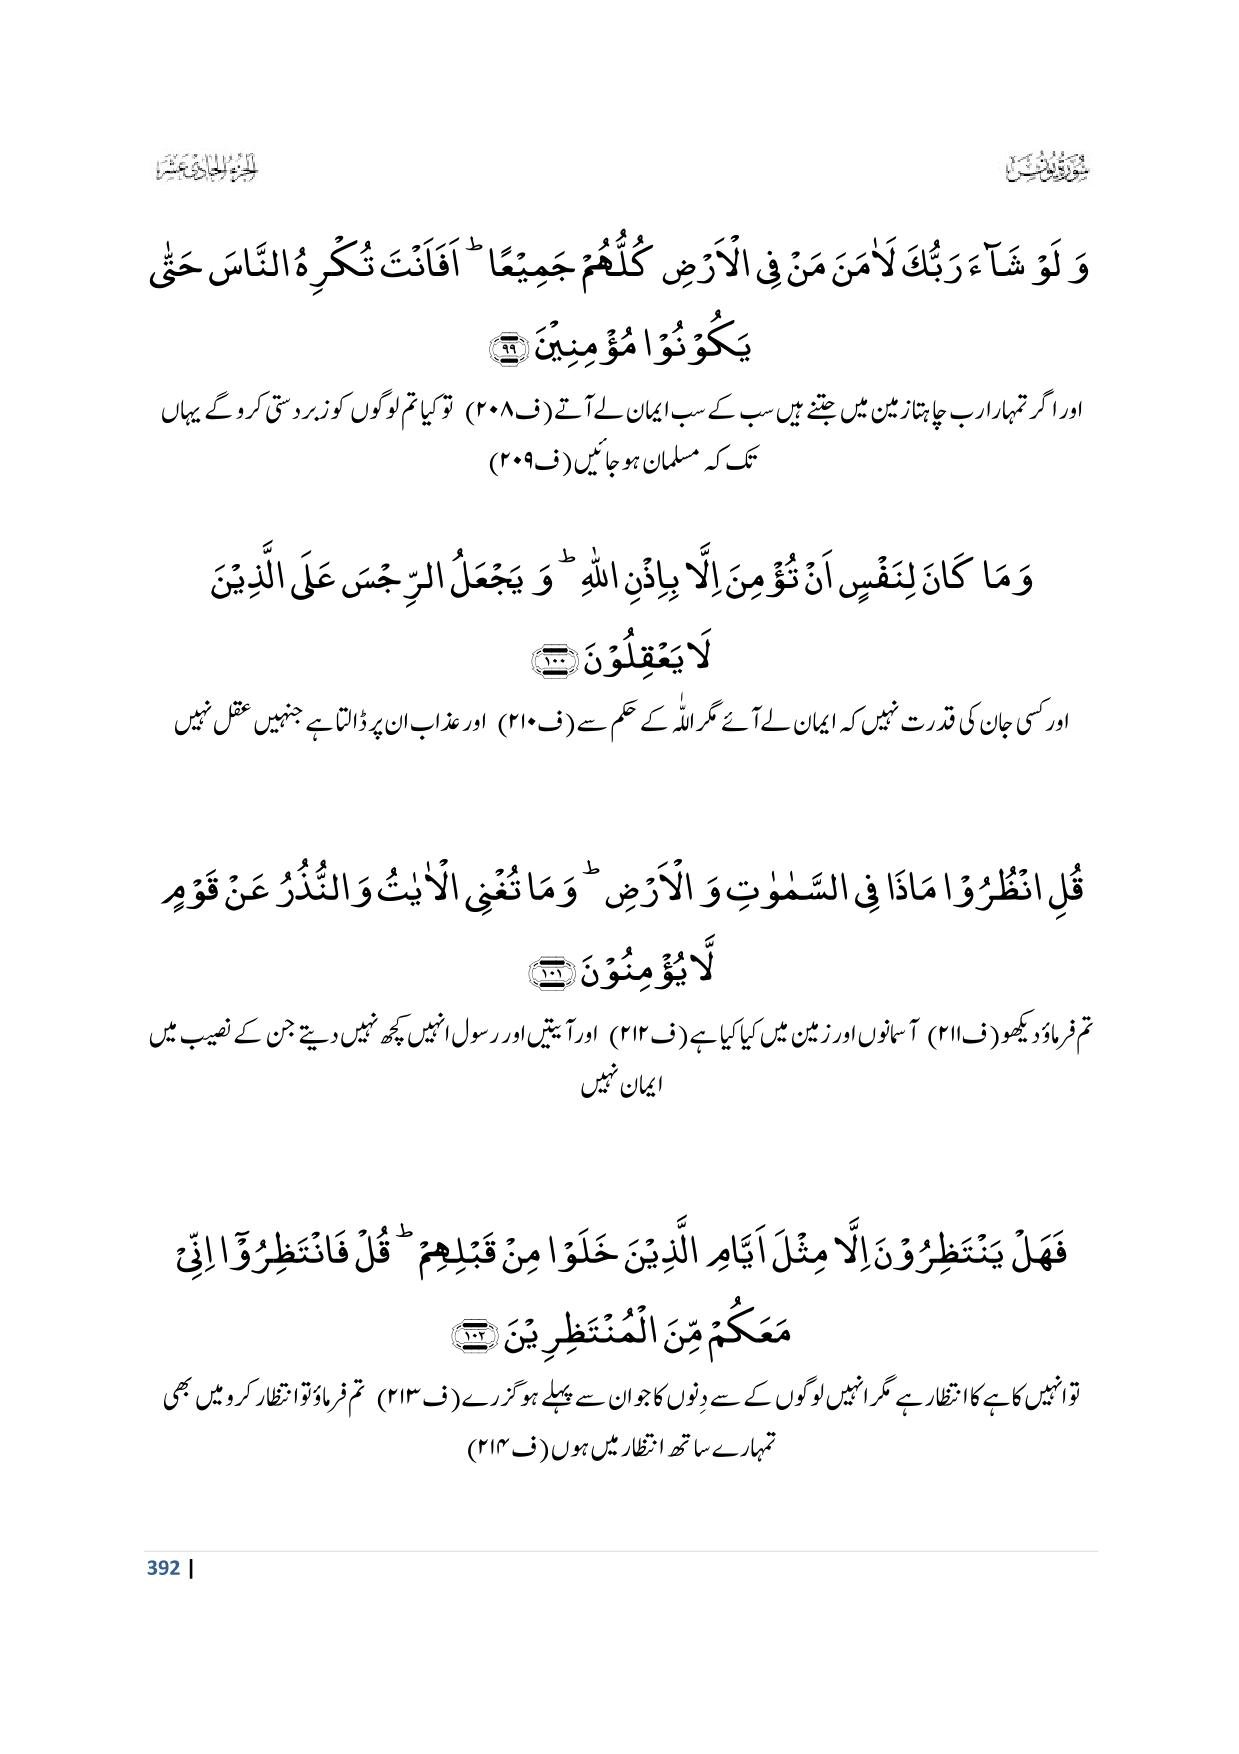 سُوْرَةُ يُوْنُس
الجزء الحادي عشر
وَ لَوْ شَآءَ رَبُّكَ لَاٰمَنَ مَنْ فِی الْاَرْضِ كُلُّهُمْ جَمِیْعًاؕ اَفَاَنْتَ تُكْرِهُ النَّاسَ حَتّٰی
یَكُوْنُوْا مُؤْمِنِیْنَ ﴿۹۹﴾
اور اگر تمہارا رب چاہتا زمین میں جتنے ہیں سب کے سب ایمان لے آتے (ف۲۰۸) تو کیا تم لوگوں کو زبردستی کرو گے یہاں
تک کہ مسلمان ہو جائیں (ف۲۰۹)
وَ مَا كَانَ لِنَفْسٍ اَنْ تُؤْمِنَ اِلَّا بِاِذْنِ اللّٰهِؕ وَ یَجْعَلُ الرِّجْسَ عَلَی الَّذِیْنَ
لَا یَعْقِلُوْنَ ﴿۱۰۰﴾
اور کسی جان کی قدرت نہیں کہ ایمان لے آئے مگر اللّٰہ کے حکم سے (ف۲۱۰) اور عذاب ان پر ڈالتا ہے جنہیں عقل نہیں
قُلِ انْظُرُوْا مَاذَا فِی السَّمٰوٰتِ وَ الْاَرْضِؕ وَ مَا تُغْنِی الْاٰیٰتُ وَ النُّذُرُ عَنْ قَوْمٍ
لَّا یُؤْمِنُوْنَ ﴿۱۰۱﴾
تم فرماؤ دیکھو (ف۲۱۱) آسمانوں اور زمین میں کیا کیا ہے (ف۲۱۲) اور آیتیں اور رسول انہیں کچھ نہیں دیتے جن کے نصیب میں
ایمان نہیں
فَهَلْ یَنْتَظِرُوْنَ اِلَّا مِثْلَ اَیَّامِ الَّذِیْنَ خَلَوْا مِنْ قَبْلِهِمْؕ قُلْ فَانْتَظِرُوْۤا اِنِّیْ
مَعَكُمْ مِّنَ الْمُنْتَظِرِیْنَ ﴿۱۰۲﴾
تو انہیں کاہے کا انتظار ہے مگر انہیں لوگوں کے سے دِنوں کا جو ان سے پہلے ہو گزرے (ف۲۱۳) تم فرماؤ تو انتظار کرو میں بھی
تمہارے ساتھ انتظار میں ہوں (ف۲۱۴)
392 |